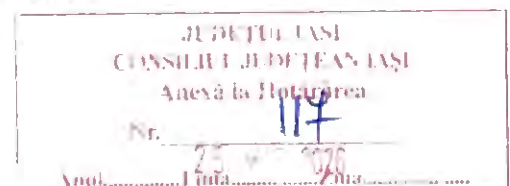 JUDEŢUL IAŞI
CONSILIUL JUDEŢEAN IAŞI
Anexă la Hotărârea
Nr. 117
Anul............Luna............Ziua............